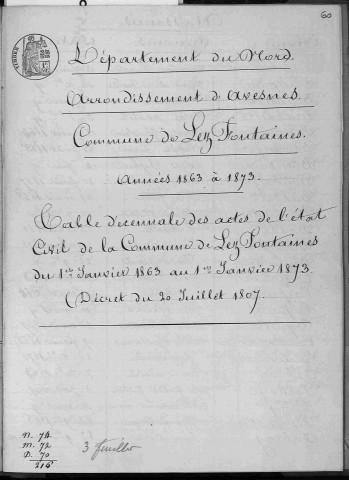 60
Département du Nord.
Arrondissement d'Avesnes.
Commune de Lez Fontaines.
Années 1863 à 1873.
Table décennale des actes de l'état
Civil de la Commune de Lez Fontaines
du 1er Janvier 1863 au 1er Janvier 1873.
(Décret du 20 Juillet 1807.
N. 74
M. 72
D. 70
216
3 feuilles